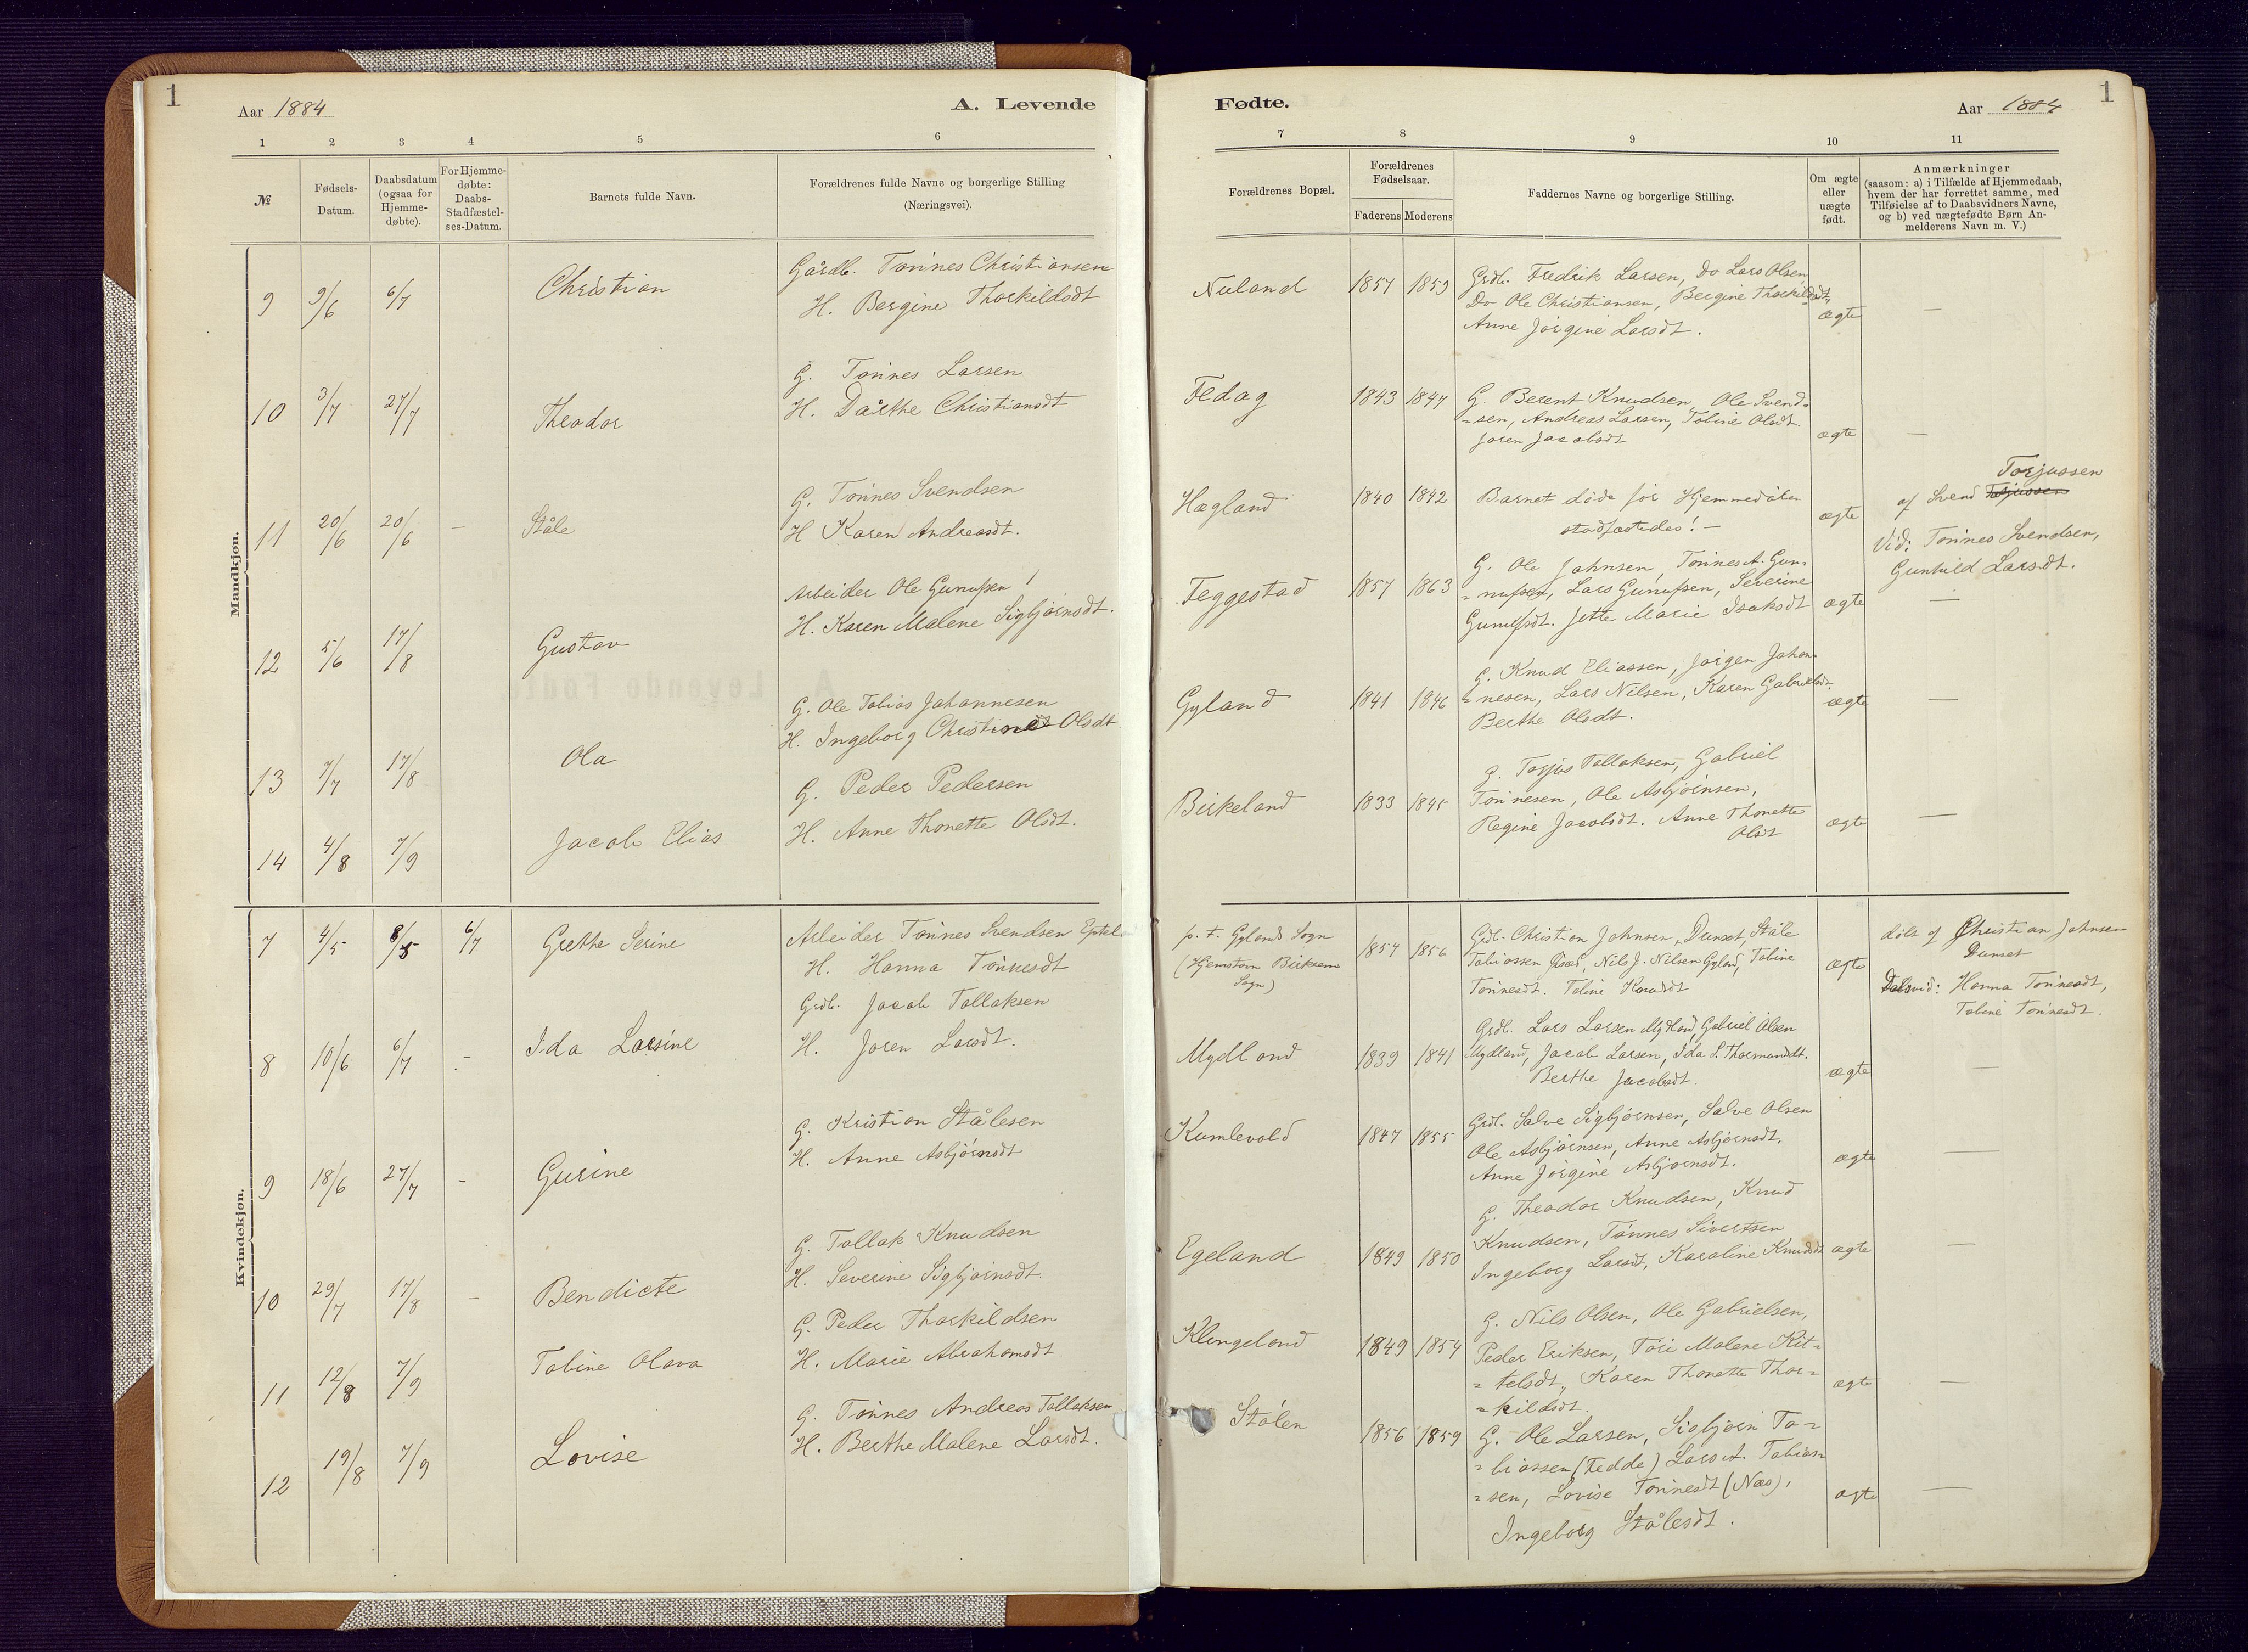 1
Aar 1884
A. Levende
1 2 3 4 5 6
№
Fødsels-
Datum.
Daabsdatum
(ogsaa for
Hjemme-
døbte).
For Hjemme-
døbte:
Daabs-
Stadfæstel-
ses-Datum.
Barnets fulde Navn.
Forældrenes fulde Navne og borgerlige Stilling
(Næringsvei).
Mandkjøn.
9 9/6 6/7 Christian
Gårdb. Tønnes Christiansen
H. Bergine Thorkildsdt
10 3/7 27/7 Theodor
G. Tønnes Larsen
H. Dårthe Christiansdt
11 20/6 20/6 – Ståle
G. Tønnes Svendsen
H Karen Andreasdt.
12 5/6 17/8 Gustav
Arbeider Ole Gunufsen
H. Karen Malene Sigbjørnsdt.
13 7/7 17/8 Ola
G. Ole Tobias Johannesen
H. Ingeborg Christine Olsdt
14 4/8 7/9 Jacob Elias
G. Peder Pedersen
H. Anne Thonette Olsdt.
Kvindekjøn.
7 4/5 8/5 6/7 Grethe Serine
Arbeider Tønnes Svendsen
H. Hanna Tønnesdt
8 10/6 6/7 – Ida Larsine
Grdb. Jacob Tollaksen
H. Joren Larsdt.
9 18/6 27/7 – Gurine
G. Kristian Stålesen
H. Anne Asbjørnsdt
10 29/7 17/8 – Bendicte
G. Tollak Knudsen
H. Severine Sigbjørnsdt.
11 12/8 7/9 Tobine Olava
G. Peder Thorkildsen
H. Marie Abrahamsdt
12 19/8 7/9 Lovise
G. Tønnes Andreas Tollaksen
H. Berthe Malene Larsdt.
Fødte.
Aar 1884
1
7 8 9 10 11
Forældrenes Bopæl.
Forældrenes
Fødselsaar.
Faderens Moderens
Faddernes Navne og borgerlige Stilling.
Om ægte
eller
uægte
født.
Anmærkninger
(saasom: a) i Tilfælde af Hjemmedaab,
hvem der har forrettet samme, med
Tilføielse af to Daabsvidners Navne,
og b) ved uægtefødte Børn An-
melderens Navn m. V.)
Nuland 1857 1859
Grdb. Fredrik Larsen, Do Lars Olsen
Do Ole Christiansen, Bergine Thorkildsdt,
Anne Jørgine Larsdt.
ægte —
Fedog 1843 1847
G. Berent Knudsen, Ole Svend-
=sen, Andreas Larsen, Tobine Olsdt.
Joren Jacobsdt
ægte —
Hægland 1840 1842
Barnet døde før Hjemmedåben
stadfæstedes! –
ægte
Torjussen
af Svend Torjussen
Vid: Tønnes Svendsen,
Gunhild Larsdt.
Feggestad 1857 1863
G. Ole Johnsen, Tønnes A. Gun-
=nufsen, Lars Gunufsen, Severine
Gunufsdt. Jette Marie Isaksdt
ægte —
Gyland 1841 1846
G. Knud Eliassen, Jørgen Johan-
=nesen, Lars Nilsen, Karen Gabrielsdt.
Berthe Olsdt.
ægte —
Birkeland 1833 1845
G. Torjus Tollaksen, Gabriel
Tønnesen, Ole Asbjørnsen,
Regine Jacobsdt. Anne Thonette
Olsdt
ægte —
p. t. Gylands Sogn
(Hjemstavn Bakke
Sogn)
1857 1856
Grdb. Christian Johnsen, Dunset, Ståle
Tobiassen, Nils J. Nilsen Gyland, Tobine
Tønnesdt. Tobine Knudsdt
ægte
døbt af Christian Johnsen
Dunset
Dåbsvid: Hanna Tønnesdt,
Tobine Tønnesdt.
Mydland 1839 1841
Grdb. Lars Larsen Mydland, Gabriel Olsen
Mydland, Jacob Larsen, Ida L. Thormodsdt.
Berthe Jacobsdt.
ægte —
Kumlevold 1847 1855
Grdb. Salve Sigbjørnsen, Salve Olsen
Ole Asbjørnsen, Anne Asbjørnsdt.
Anne Jørgine Asbjørnsdt.
ægte —
Egeland 1849 1850
G. Theodor Knudsen, Knud
Knudsen, Tønnes Sivertsen
Ingeborg Larsdt, Karoline Knudsdt
ægte —
Klungeland 1849 1854
G. Nils Olsen, Ole Gabrielsen,
Peder Eriksen, Tori Malene Kit=
=telsdt, Karen Thonette Thor=
=kildsdt.
ægte —
Stølen 1856 1859
G. Ole Larsen, Sigbjørn To=
=biassen (Fedde) Lars A. Tobias=
=sen, Lovise Tønnesdt (Næs),
Ingeborg Stålesdt.
ægte —